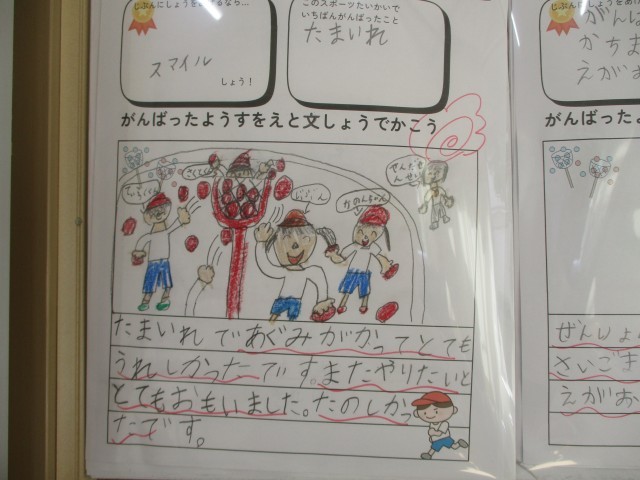 じぶんにしょうをあげるなら…
スマイル
しょう！
このスポーツたいかいで
いちばんがんばったこと
たまいれ
がんばったようすをえと文しょうでかこう
たまいれ であぐみがかってとても
うれしかったです。またやりたいと
とてもおもいました。たのしかっ
たです。
じぶんにしょうをあ
がんば
かちま
えがお
がんばったよ
ぜんしょ
さいごま
えがお